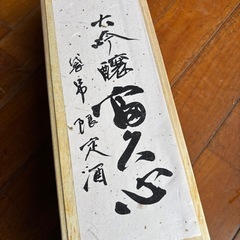 大吟醸
富久心
袋吊 限定酒